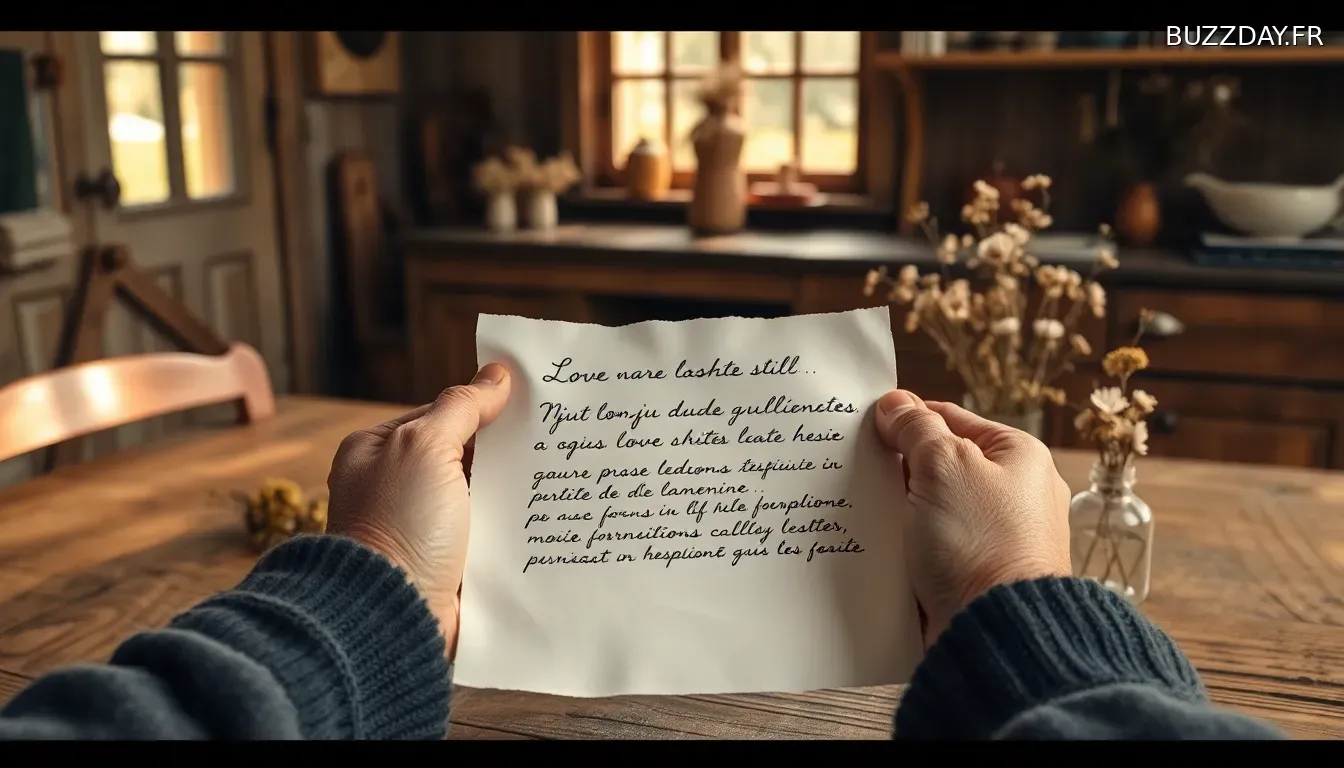 BUZZDAY.FR
Love nare lashte still..
Njut lon-ju dude gulliénctes,
a agus love shites leate hesie
gaure prase ledioms in
perlite de dle lamenine..
pe auc forms in lif hele fomplione,
moxie formeitions calley lestter,
in hesplioné gus les fosite